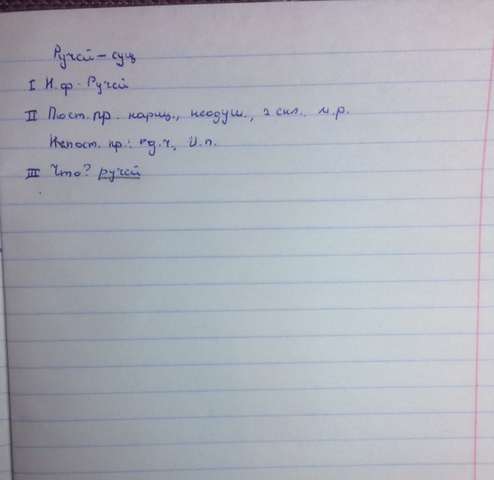 Ручей – сущ
I Н.ф - Ручей
II Пост. пр: нариц., неодуш., 2 скл. м.р.
Непост. пр.: ед.ч., И.п.
III Что? ручей